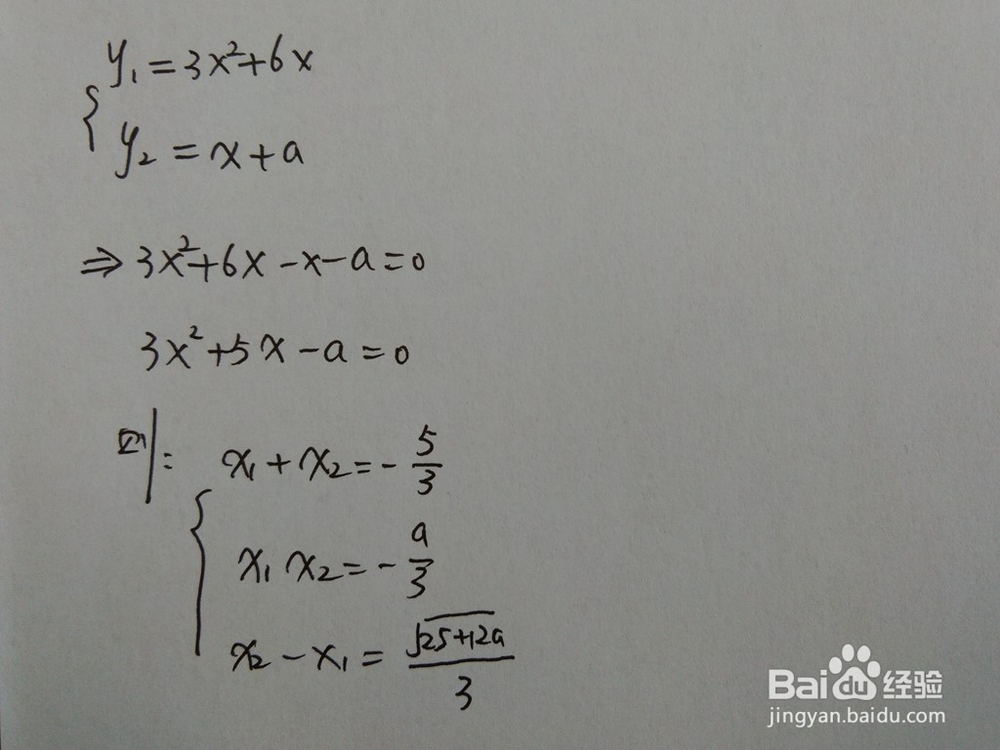 y₁=3x²+6x
y₂=x+a
⇒3x²+6x-x-a=0
3x²+5x-a=0
则: x₁+x₂=-5/3
x₁x₂=-a/3
x₂-x₁=√(25+12a)/3
Baidu经验
jingyan.baidu.com